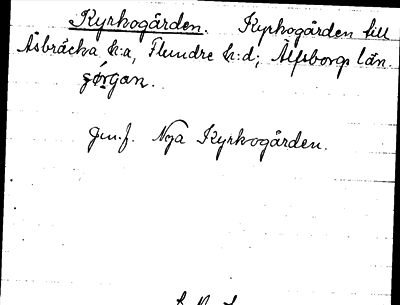 Kyrkogården. Kyrkogården till
Åsbräcka k:a, Flundre h:d; Älfsborgs län.
gǿrgan.
jmf. Nya Kyrkogården.